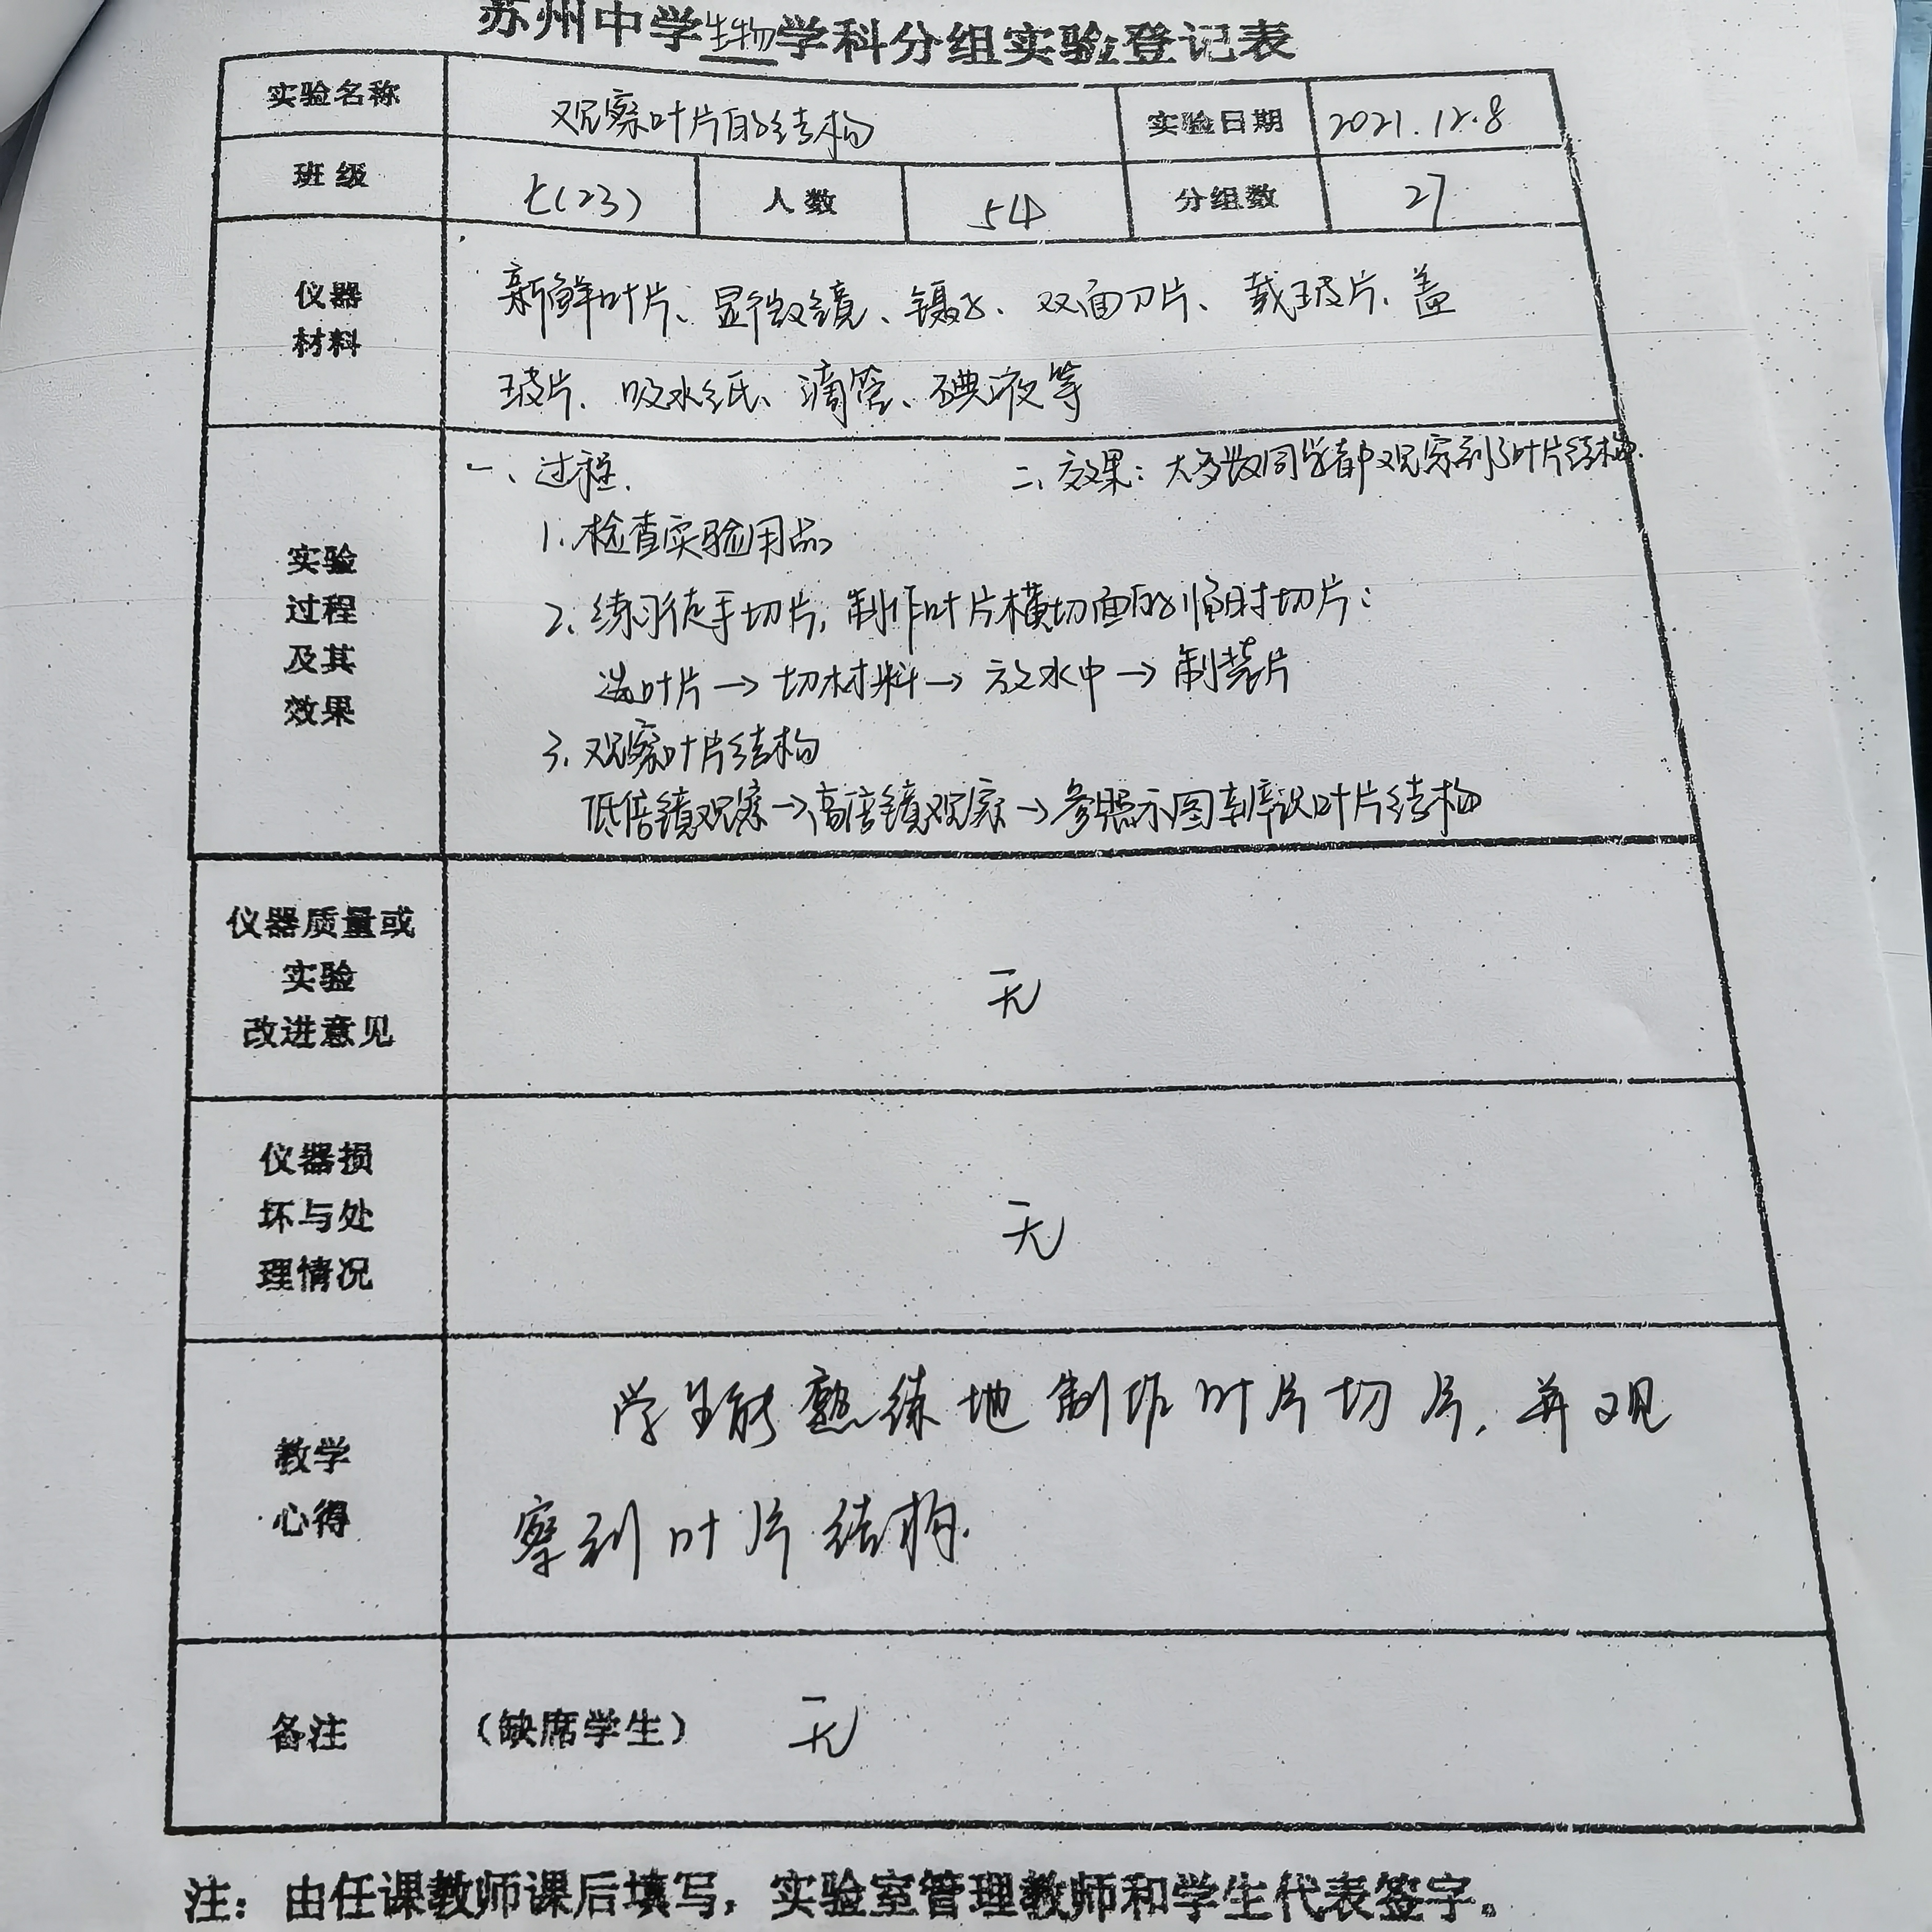 苏州中学生物学科分组实验登记表
实验名称 观察叶片的结构 实验日期 2021.12.8
班级 七(23) 人数 54 分组数 27
仪器
材料
新鲜叶片、显微镜、镊子、双面刀片、载玻片、盖
玻片、吸水纸、滴管、碘液等
实验
过程
及其
效果
一、过程.
二、效果：大多数同学都观察到了叶片结构.
1.检查实验用品
2.练习徒手切片,制作叶片横切面的临时切片:
选叶片→切材料→放水中→制装片
3.观察叶片结构
低倍镜观察→高倍镜观察→参照示图辨识叶片结构
仪器质量或
实验
改进意见
无
仪器损
坏与处
理情况
无
教学
心得
学生能熟练地制作叶片切片,并观
察到叶片结构.
备注 (缺席学生) 无
注：由任课教师课后填写，实验室管理教师和学生代表签字。